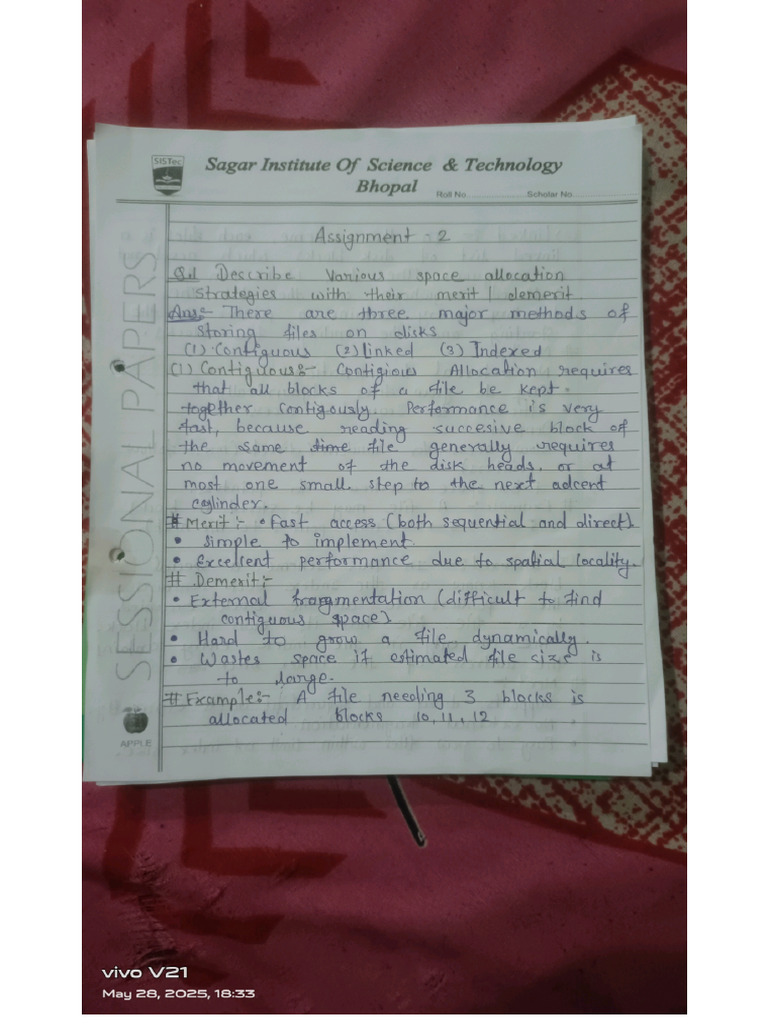 SISTec
Sagar Institute Of Science & Technology
Bhopal
Roll No. Scholar No.
SESSIONAL PAPERS
Assignment - 2
Q.1 Describe Various space allocation
strategies with their merit / demerit.
Ans:- There are three major methods of
storing files on disks
(1) Contiguous (2) linked (3) Indexed
(1) Contiguous:- Contigious Allocation requires
that all blocks of a file be kept
together contigously. Performance is very
fast, because reading succesive block of
the same time file generally requires
no movement of the disk heads, or at
most one small step to the next adcent
cylinder.
# Merit:- • Fast access (both sequential and direct)
• Simple to implement
• Excellent performance due to spatial locality.
# Demerit:-
• External fragmentation (difficult to find
contiguous space)
• Hard to grow a file dynamically.
• Wastes space if estimated file size is
to large.
# Example:- A file needing 3 blocks is
allocated blocks 10, 11, 12
APPLE
vivo V21
May 28, 2025, 18:33